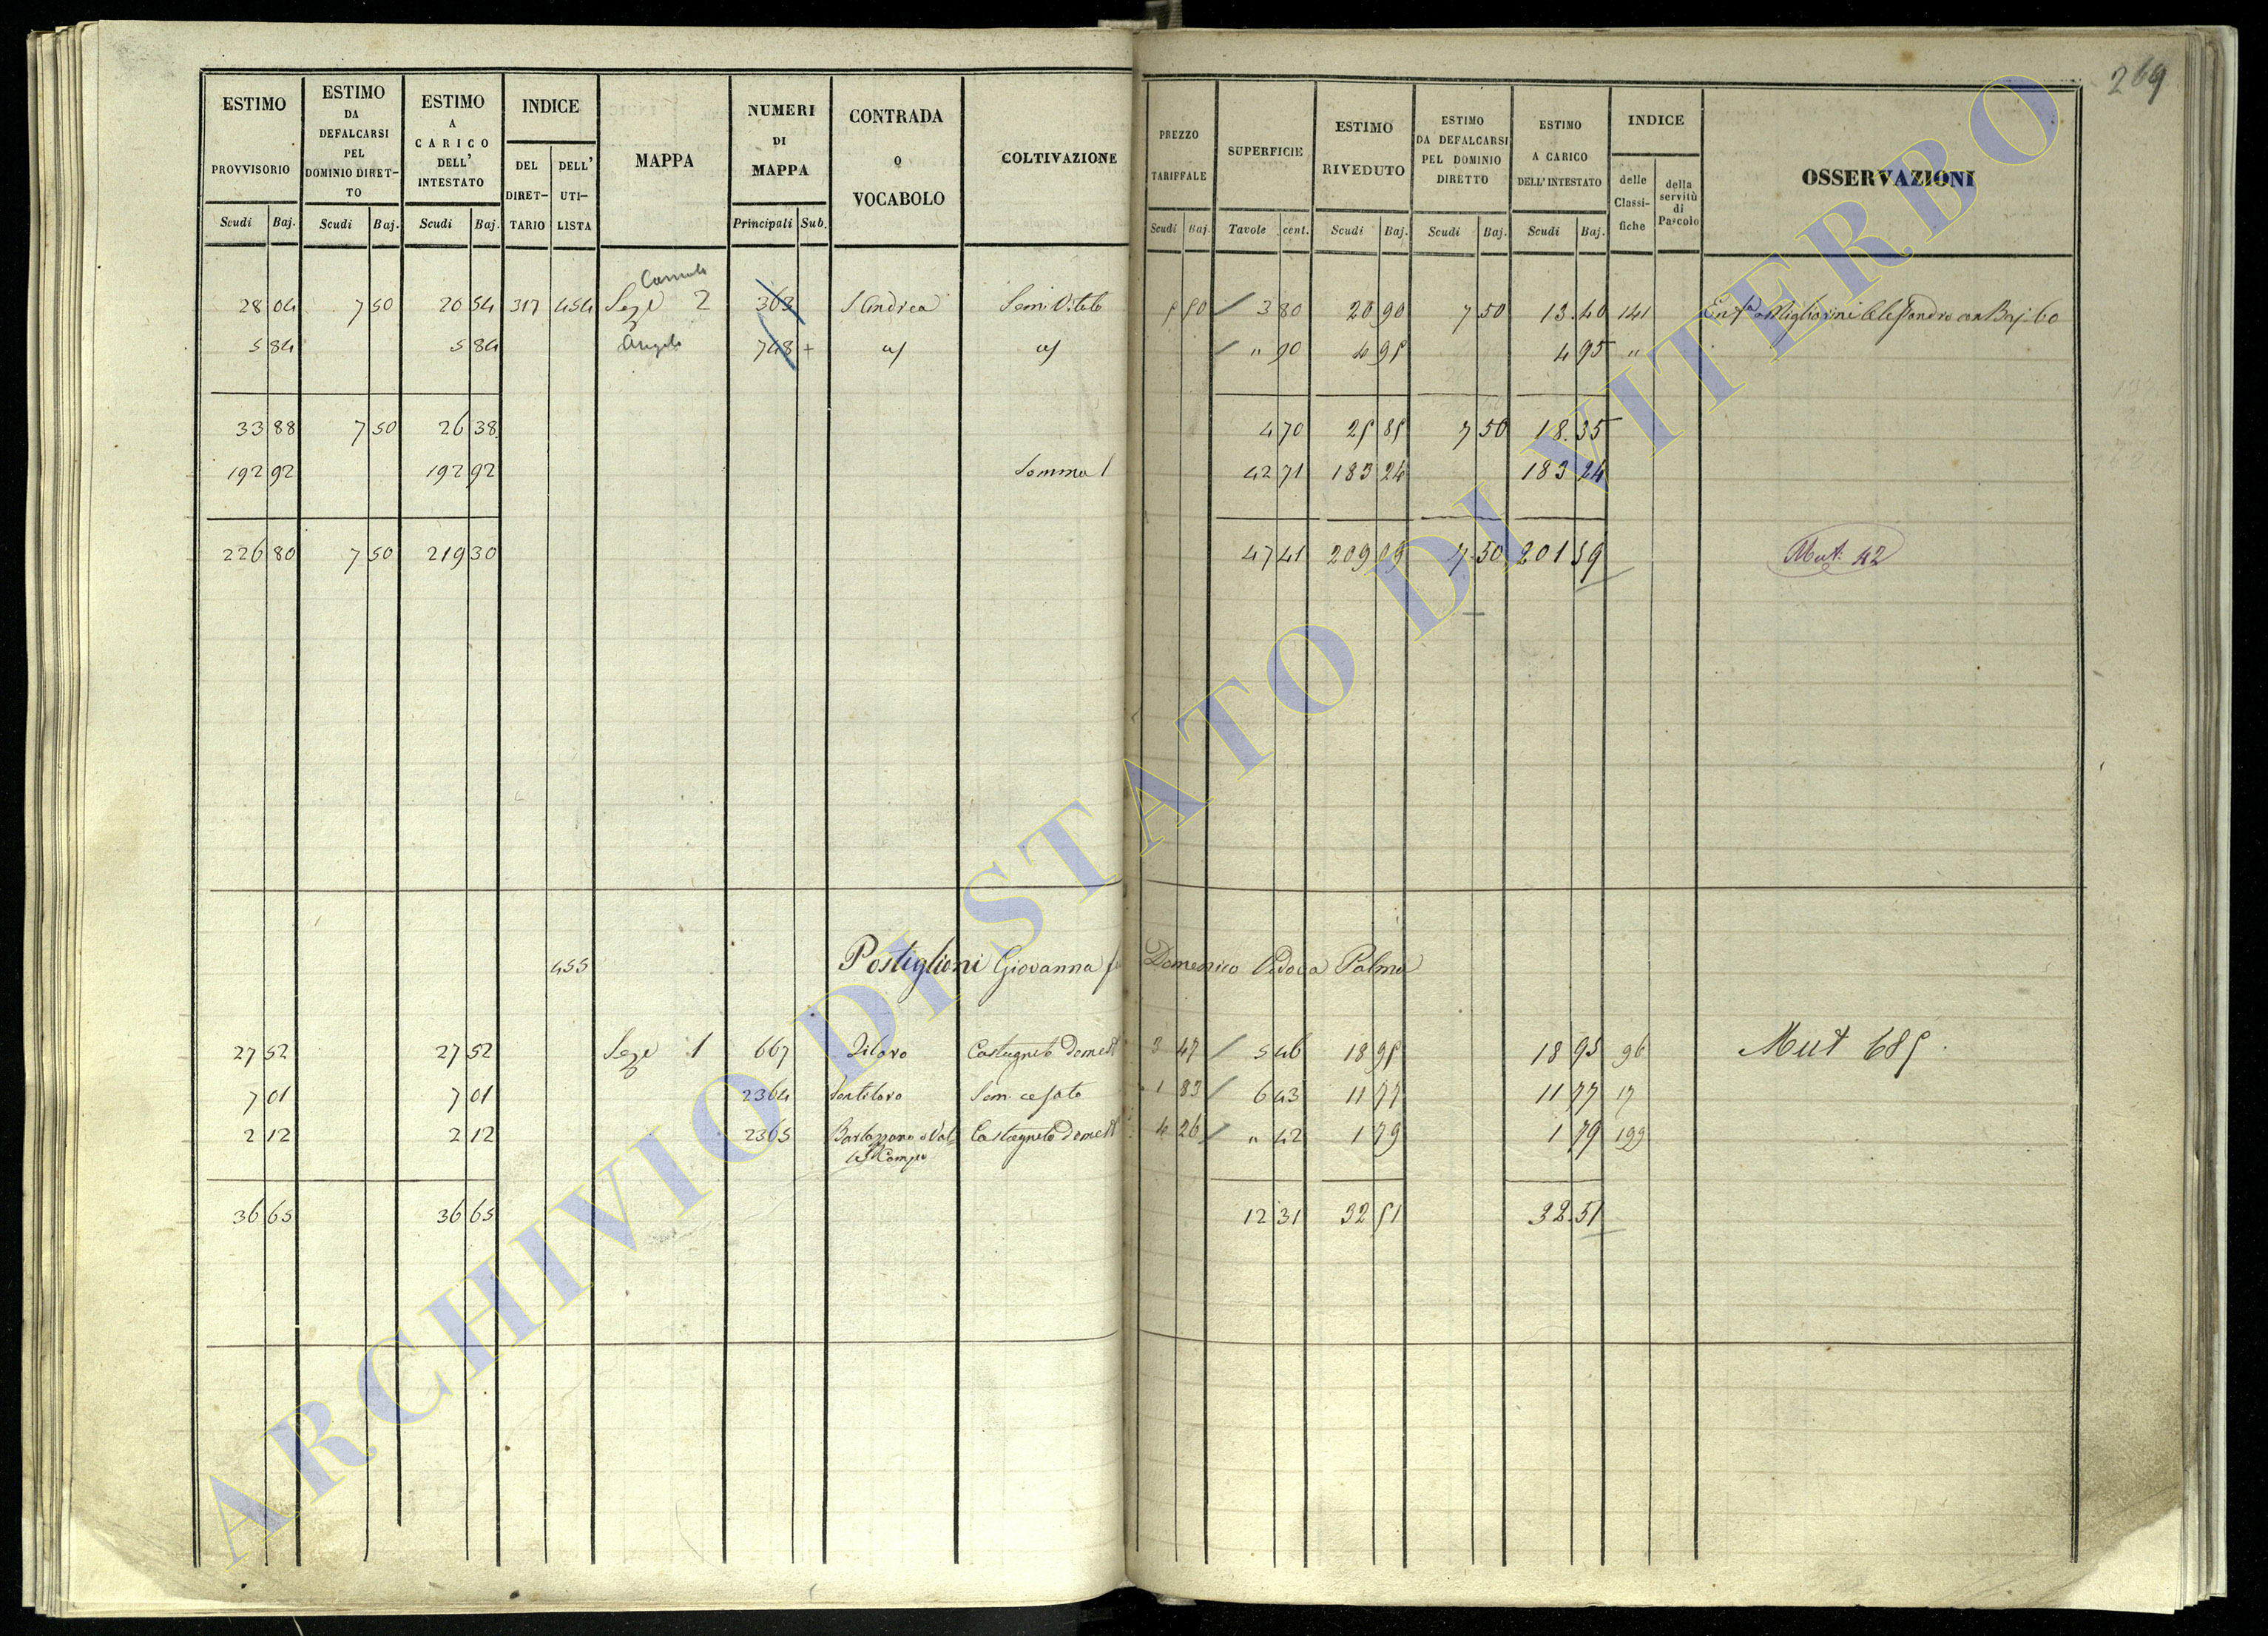 269
ESTIMO PROVVISORIO Scudi Baj.
ESTIMO DA DEFALCARSI PEL DOMINIO DIRET-TO Scudi Baj.
ESTIMO A CARICO DELL' INTESTATO Scudi Baj.
INDICE DEL DIRET-TARIO DELL' UTI-LISTA
MAPPA
NUMERI DI MAPPA Principali Sub.
CONTRADA O VOCABOLO
COLTIVAZIONE
PREZZO TARIFFALE Scudi Baj.
SUPERFICIE Tavole cent.
ESTIMO RIVEDUTO Scudi Baj.
ESTIMO DA DEFALCARSI PEL DOMINIO DIRETTO Scudi Baj.
ESTIMO A CARICO DELL' INTESTATO Scudi Baj.
INDICE delle Classi-fiche della servitù di Pascolo
OSSERVAZIONI
28 04 7 50 20 54 317 454 Seze 2 363 S Andrea Sem: Vitato 5 50 / 3 80 20 90 7 50 13.40 141 Migliorini Alessandro con Baj: 60
5 84 5 84 Angelo 748 + / " 90 4 95 4 95 "
33 88 7 50 26 38 4 70 25 85 7 50 18.35
192 92 192 92 Somma 42 71 183 24 183 24
226 80 7 50 219 30 47 41 209 09 7.50 201 59 Mut. 42
455 Postiglioni Giovanna Domenico Vedova Palma
27 52 27 52 Seze 1 667 Castagneto Domest 3 47 / 5 46 18 95 18 95 96 Mut 685.
7 01 7 01 2364 Sem. cesato 1 83 / 6 43 11 77 11 77 17
2 12 2 12 2365 Castagneto Domest 4 26 / " 42 1 79 1 79 199
36 65 36 65 12 31 32 51 32.51
ARCHIVIO DI STATO DI VITERBO